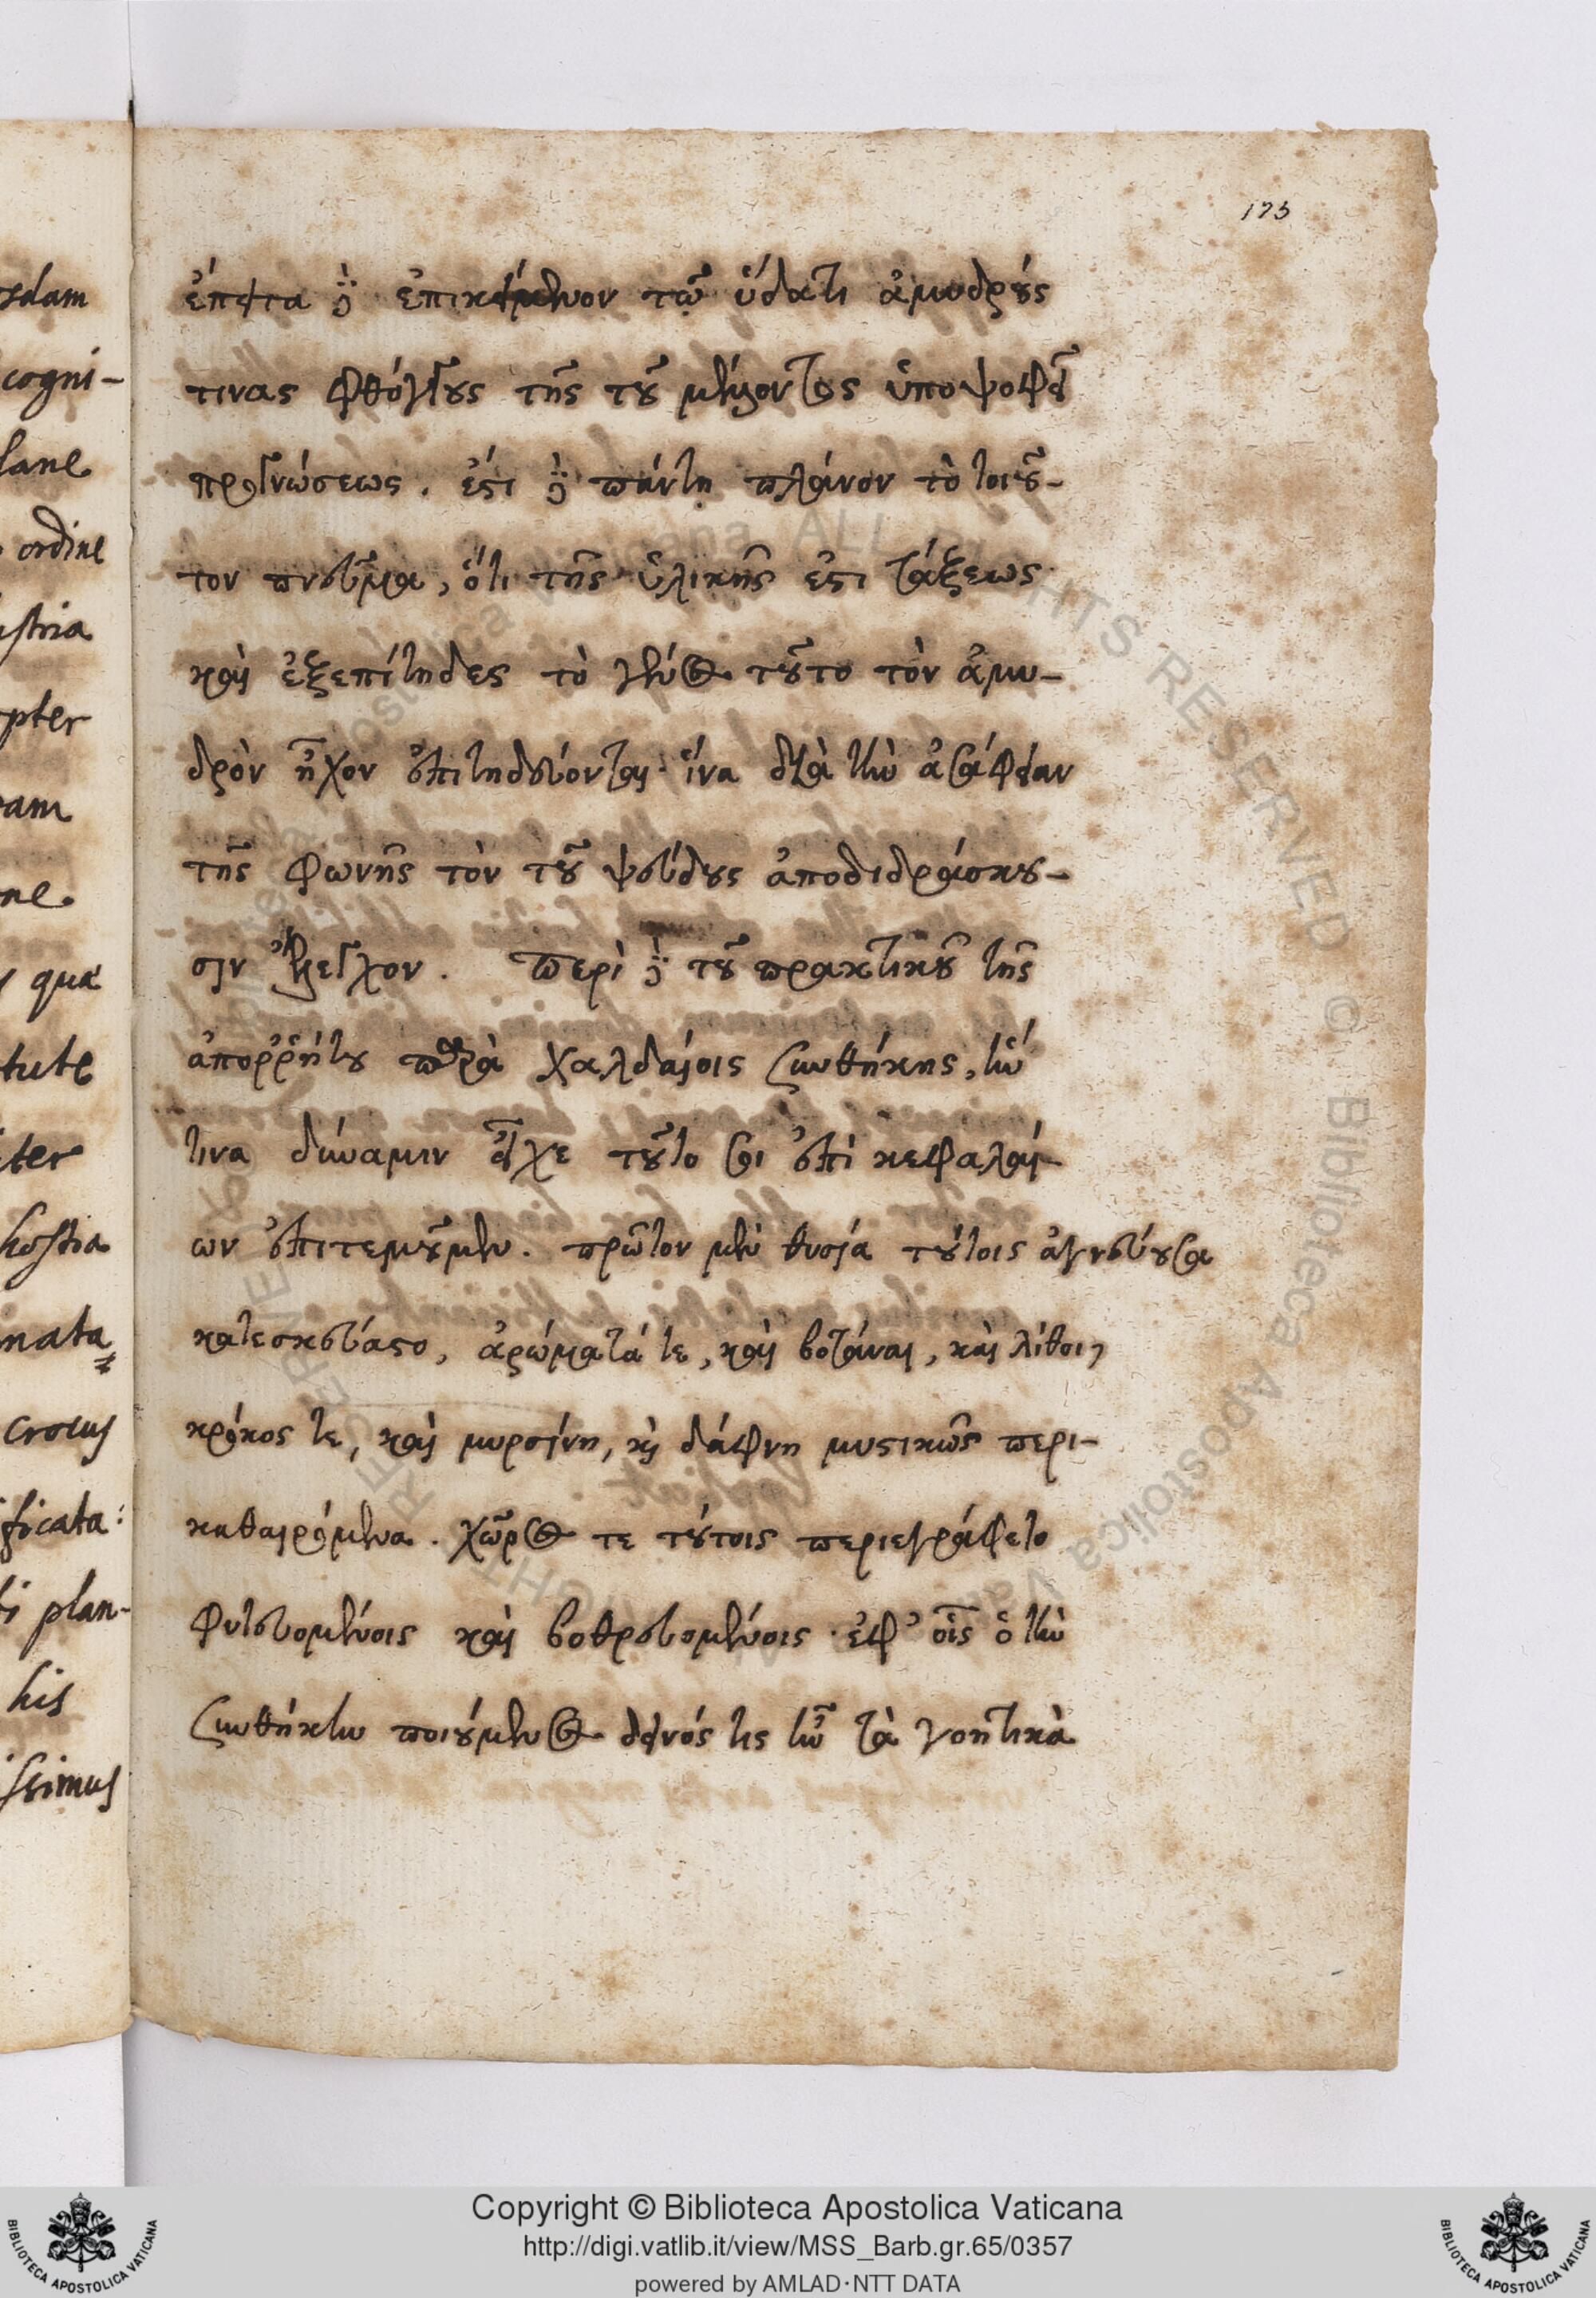 173
ἔπειτα δὲ ἐπικείμενον τῷ ὕδατι ἀμυδρούς
τινας φθόγγους τῆς τοῦ μέλλοντος ὑποψοφεῖ
προγνώσεως. ἔστι δὲ πάντη πλάνον τὸ τοιοῦ-
τον πνεῦμα, ὅτι τῆς ὑλικῆς ἐστι τάξεως
καὶ ἐξεπίτηδες τὸ γένος τοῦτο τὸν ἀμυ-
δρὸν ἦχον ἐπιτηδεύονται· ἵνα διὰ τὴν ἀσάφειαν
τῆς φωνῆς τὸν τοῦ ψεύδους ἀποδιδράσκου-
σιν ἔλεγχον. περὶ δὲ τοῦ πρακτικοῦ τῆς
ἀποῤῥήτου παρὰ χαλδαίοις συνθήκης, ἣν
τινα δύναμιν εἶχε τοῦτό σοι ἐπὶ κεφαλαί-
ων ἐπιτεμοῦμεν. πρῶτον μὲν θυσία τούτοις ἁγνεύουσα
κατεσκεύαστο, ἀρώματά τε, καὶ βοτάναι, καὶ λίθοι,
κρόκος τε, καὶ μυρσίνη, καὶ δάφνη μυστικῶς περι-
καθαιρόμενα. χῶρος τε τούτοις περιεγράφετο
φυτευομένοις καὶ βοθρευομένοις· ἐφ' οἷς ὁ τὴν
συνθήκην ποιούμενος δεινός τις ἦν τὰ γοητικὰ
cogni-
ordine
pter
qua
hostia
crocus
ficata:
plan-
his
Copyright © Biblioteca Apostolica Vaticana
http://digi.vatlib.it/view/MSS_Barb.gr.65/0357
powered by AMLAD·NTT DATA
BIBLIOTECA APOSTOLICA VATICANA
BIBLIOTECA APOSTOLICA VATICANA